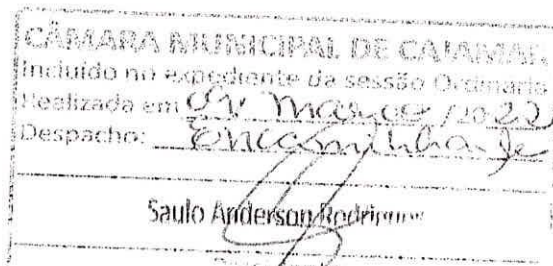 CÂMARA MUNICIPAL DE CAJAMAR
Incluido no expediente da sessão Ordinaria
Realizada em Março /2022
Despacho: Encaminha-se
Saulo Anderson Rodrigues